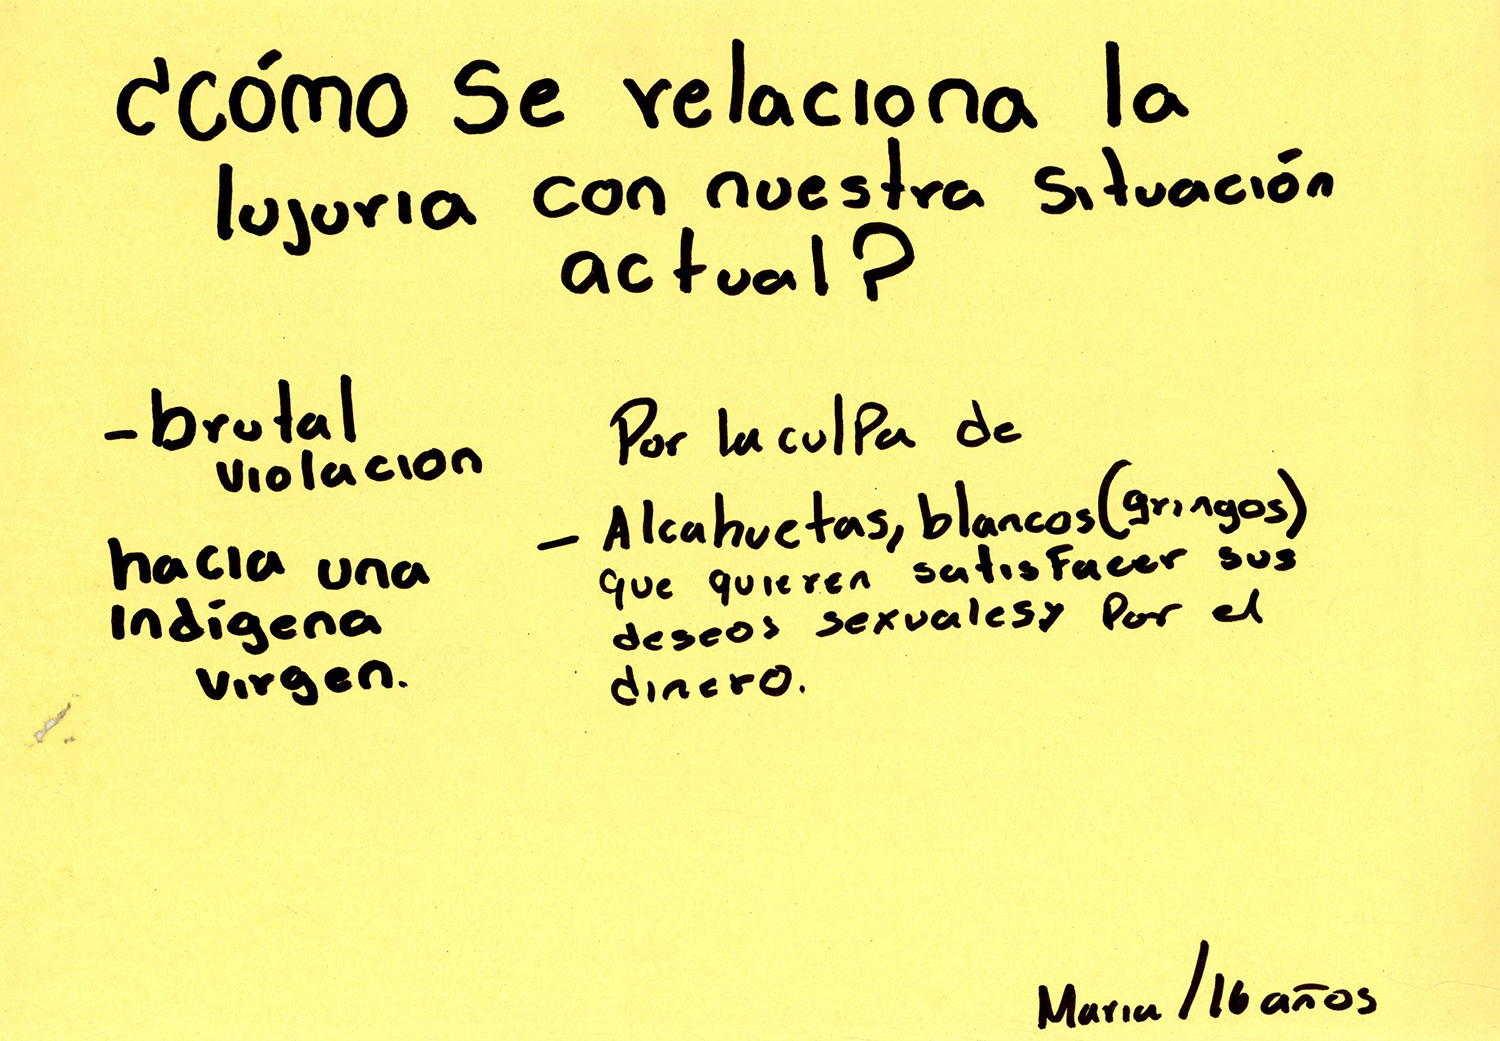 ¿Cómo se relaciona la
lujuria con nuestra situación
actual?
- brutal
violacion
hacia una
indígena
virgen.
Por la culpa de
- Alcahuetas, blancos (gringos)
que quieren satisfacer sus
deseos sexuales y por el
dinero.
Maria / 16 años